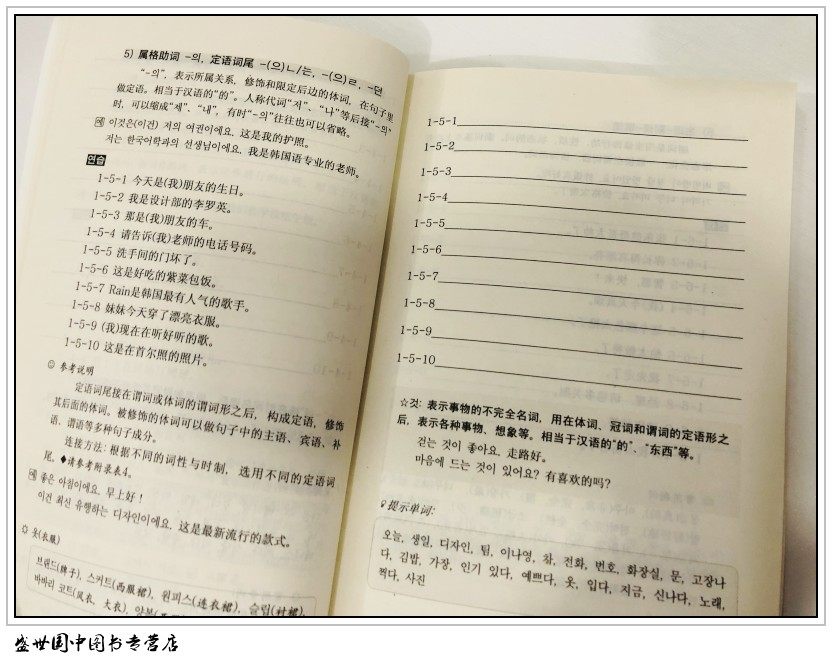 5) 属格助词 -의, 定语词尾 -(으)ㄴ/는, -(으)ㄹ, -던
“-의”, 表示所属关系, 修饰和限定后边的体词, 在句子里
做定语。相当于汉语的“的”。人称代词“저”、“나”等后接“-의”
时, 可以缩成“제”、“내”, 有时“-의”往往也可以省略。
예 이것은(이건) 저의 여권이에요. 这是我的护照。
저는 한국어학과의 선생님이에요. 我是韩国语专业的老师。
연습
1-5-1 今天是(我)朋友的生日。
1-5-2 我是设计部的李罗英。
1-5-3 那是(我)朋友的车。
1-5-4 请告诉(我)老师的电话号码。
1-5-5 洗手间的门坏了。
1-5-6 这是好吃的紫菜包饭。
1-5-7 Rain是韩国最有人气的歌手。
1-5-8 妹妹今天穿了漂亮衣服。
1-5-9 (我)现在在听好听的歌。
1-5-10 这是在首尔照的照片。
☺ 参考说明
定语词尾接在谓词或体词的谓词形之后, 构成定语, 修饰
其后面的体词。被修饰的体词可以做句子中的主语、宾语、补
语、谓语等多种句子成分。
连接方法: 根据不同的词性与时制, 选用不同的定语词
尾。◆请参考附录表4。
예 좋은 아침이에요. 早上好!
이건 최신 유행하는 디자인이에요. 这是最新流行的款式。
옷(衣服)
브랜드(牌子), 스커트(西服裙), 원피스(连衣裙), 슬립(衬裙),
바바리 코트(风衣、大衣), 양복
1-5-1
1-5-2
1-5-3
1-5-4
1-5-5
1-5-6
1-5-7
1-5-8
1-5-9
1-5-10
☆것: 表示事物的不完全名词, 用在体词、冠词和谓词的定语形之
后, 表示各种事物、想象等。相当于汉语的“的”、“东西”等。
걷는 것이 좋아요. 走路好。
마음에 드는 것이 있어요? 有喜欢的吗?
提示单词:
오늘, 생일, 디자인, 팀, 이나영, 참, 전화, 번호, 화장실, 문, 고장나
다, 김밥, 가장, 인기 있다, 예쁘다, 옷, 입다, 지금, 신나다, 노래,
찍다, 사진
盛世国中图书专营店